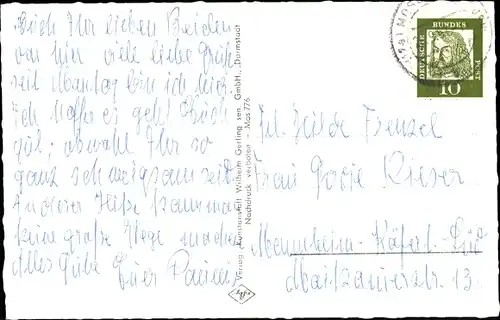 Euch Ihr lieben Beiden
von hier viele liebe Grüße
seit Montag bin ich hier
Ich hoffe es geht Euch
gut, obwohl Ihr so
ganz schweigsam seid.
An dieser Hitze kann man
keine große Wege machen
Alles Gute Euer
Verlag Kunstanstalt Wilhelm Gerling sen. GmbH., Darmstadt
Nachdruck verboten - Mos 176
DEUTSCHE BUNDESPOST
10
Frl. Hilde Frenzel
Frau Rieser
Mannheim-Käfertal-Süd
str. 13